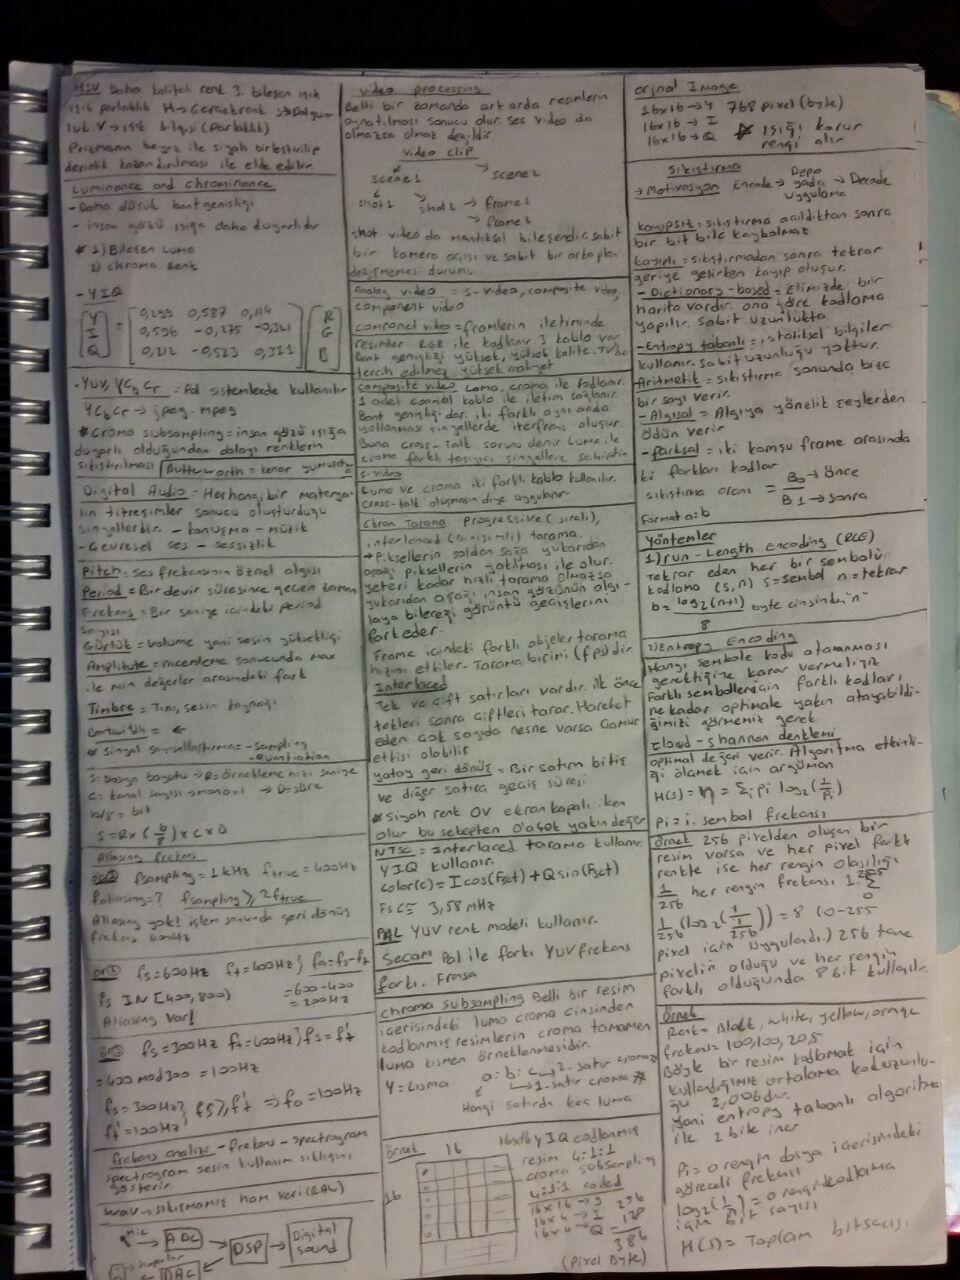 HSV Daha kaliteli renk 3. bilesen ışık
ışık parlaklık H→Gercek renk S→Dolgun
luk V→ışık bilgisi (Parlaklık)
Prizmanın beyaz ile siyah birleştirilip
derinlik kazandırılması ile elde edilir.
Luminance and chrominance
- Daha düşük bant genişliği
- insan gözü ışığa daha duyarlıdır
* 1) Bileşen Luma
2) chroma Rent
- YIQ
[Y I Q] = [0,299 0,587 0,114
0,596 -0,275 -0,321
0,212 -0,523 0,311] [R G B]
- YUV, YCbCr = Pal sistemlerde kullanılır
YCbCr → jpeg-mpeg
* Croma subsampling = insan gözü ışığa
duyarlı olduğundan dolayı renklerin
sıkıştırılması Butterworth = kenar yumuşatma
Digital Audio = Herhangi bir materya-
lin titreşimler sonucu oluşturduğu
sinyallerdir. - konuşma - müzik
- Çevresel ses - sessizlik
Pitch = ses frekansının öznel algısı
Period = Bir devir süresince geçen zaman
Frekans = Bir saniye icindeki period
sayısı
Gürlük = Volume yani sesin yüksekliği
Amplitute = nicemleme sonucunda max
ile min değerler arasındaki fark
Timbre = Tını, sesin kaynağı
Bantwith = ←
* Sinyal sayısallaştırma - sampling
- Quantiation
S = Dosya boyutu → R = örnekleme hızı saniye
C = kanal sayısı → mono = 1 → D = süre
b/8 = bit
S = R x (b/8) x C x D
Aliasing Frekans
fsampling = 1kHz ftrue = 400Hz
faliasing = ? fsampling ≥ 2ftrue
Aliasing yok! işlem sonunda geri dönüş
frekans 400Hz
ör② fs = 600Hz ft = 400Hz } fa = fs - ft
fs IN [400, 800) = 600 - 400
= 200Hz
Aliasing Var!
ör③ fs = 300Hz ft = 400Hz } fs = ft'
= 400 mod 300 = 100Hz
fs = 300Hz } fs ≥ ft' ⇒ fa = 100Hz
ft' = 100Hz
frekans analizi - frekans - spectrogram
spectrogram sesin kullanım sıklığını
gösterir.
Wav → sıkışmamış ham veri (RAW)
mic → ADC → DSP → Digital sound
DAC
video processing
Belli bir zamanda art arda resimlerin
oynatılması sonucu olur. ses video da
olmazsa olmaz değildir.
Video clip
scene1 scene2
shot1 shot2 → frame1
→ frame2
Shot video da mantıksal bileşendir. sabit
bir kamera açısı ve sabit bir arka plan
değişmemesi durumu
Analog video = s-video, composite video,
component video
componet video = framlerin iletiminde
resimler RGB ile kodlanır 3 kablo var
Bant genişliği yüksek, yüksek kalite. TV'de
tercih edilmez yüksek maliyet
Composite video Luma, croma ile kodlanır.
1 adet coaxial kablo ile iletim sağlanır.
Bant genişliği dar. iki farklı aynı anda
yollanması sinyallerde iterfrans oluşur.
Buna cross-Talk sorunu denir. Luma ile
crome farklı taşıyıcı sinyallere sahiptir
S-video
Luma ve croma iki farklı kablo kullanılır.
Cross-talk oluşmasın diye uygulanır
Ekran Tarama Progressive (sıralı),
interlanced (binişimli) tarama.
→ Piksellerin soldan sağa yukarıdan
aşağı piksellerin yakılması ile olur.
yeteri kadar hızlı tarama olmazsa
yukarıdan aşağı insan gözünün algı-
laya bileceği görüntü geçişlerini
fark eder.
Frame icindeki farklı objeler tarama
hızını etkiler - Tarama birimi (fps) dir.
Interlaced
Tek ve çift satırları vardır. ilk önce
tekleri sonra çiftleri tarar. Hareket
eden çok sayıda nesne varsa Camur
etkisi olabilir
yatay geri dönüş = Bir satırın bitiş
ve diğer satıra geçiş süresi
* Siyah rent 0V ekran kapalı iken
olur bu sebepten 0'a çok yakın değer
NTSC = Interlaced tarama kullanır
YIQ kullanır.
color(c) = I cos(Fsct) + Q sin(Fsct)
Fsc = 3,58 mHz
PAL YUV renk modeli kullanır.
Secam Pal ile farkı YUV frekans
farkı. Fransa
chroma subsampling Belli bir resim
içerisindeki luma croma cinsinden
kodlanmış resimlerin croma tamamen
luma kısmen örneklenmesidir.
Y = Luma a : b : c → 2. satır croma
→ 1. satır croma
Hangi satırda kaç luma
örnek 16 16x16 YIQ codlanmış
resim 4:1:1
croma subsampling
4:1:1 coded
16 16x16 → y 256
16x4 → I 128
16x4 → Q + 384
(Pixel Byte)
orjnal Image
16x16 → Y 768 pixel (byte)
16x16 → I
16x16 → Q * ışığı korur
rengi alır
Sıkıştırma
→ Motivasyon Encode → Depo yada uygulama → Decode
kayıpsız = sıkıştırma açıldıktan sonra
bir bit bile kaybolmaz
kayıplı = sıkıştırmadan sonra tekrar
geriye gelirken kayıp oluşur.
- Dictionary-based = Elimizde bir
harita vardır. ona göre kodlama
yapılır. Sabit uzunlukta
- Entropy tabanlı = istatiksel bilgiler
kullanır. Sabit uzunluğu yoktur.
Aritmetik = sıkıştırma sonunda bize
bir sayı verir.
- Algısal = Algıya yönelik şeylerden
ödün verir
- farksal = iki komşu frame arasında
ki farkları kodlar
sıkıştırma oranı = B0 → önce
B1 → sonra
Format a:b
Yöntemler
1) run-Length Encoding (RLE)
Tekrar eden her bir sembolü
kodlama (s,n) s = sembol n = tekrar
b = log2(n+1) / 8 byte cinsinden "n"
2) Entropy Encoding
Hangi sembole kodu atanması
gerektiğine karar vermeliyiz
Farklı semboller için farklı kodları
ne kadar optimale yakın atayabildi-
ğimizi görmemiz gerek
Cloud-shannon denklemi
optimal değeri verir. Algoritma etkinli-
ği ölçmek için argüman
H(s) = η = Σi pi log2(1/pi)
Pi = i. sembol frekansı
örnek 256 pixelden oluşan bir
resim varsa ve her pixel farklı
renkte ise her rengin olasılığı
1/256 her rengin frekansı 1. Σ 255 0
1/256 (log2(1/(1/256))) = 8 (0-255
pixel için uygulandı.) 256 tane
pixelin olduğu ve her rengin
farklı olduğunda 8 bit kullanılır.
örnek
Rent = Black, white, yellow, orange
frekans = 100, 100, 20, 5
Böyle bir resim kodlamak için
kullandığımız ortalama kod uzunlu-
ğu 2,006 dır.
yani entropy tabanlı algoritma
ile 2 bite iner
Pi = o rengin dosya içerisindeki
göreceli frekansı
log2(1/pi) = o rengi kodlama
için bit sayısı
H(s) = Toplam bit sayısı